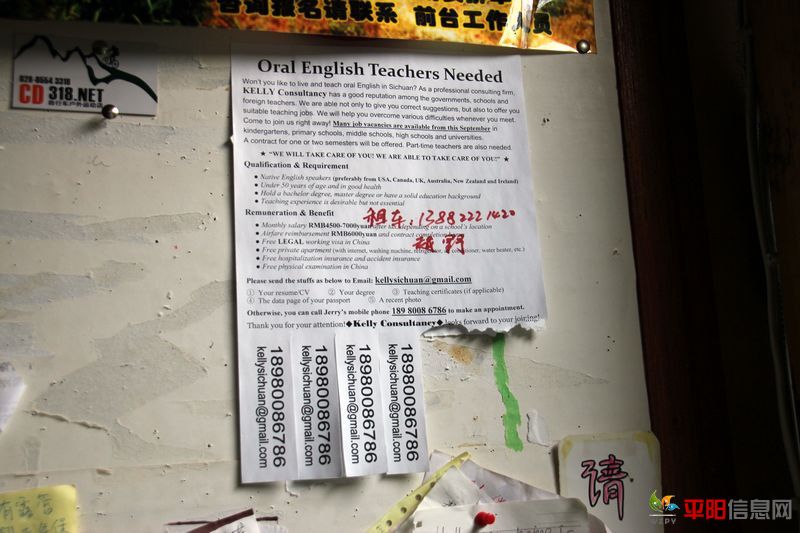 咨询报名请联系 前台工作人员
028-8554 3318
CD 318.NET
自行车户外运动店
Oral English Teachers Needed
Won't you like to live and teach oral English in Sichuan? As a professional consulting firm,
KELLY Consultancy has a good reputation among the governments, schools and
foreign teachers. We are able not only to give you correct suggestions, but also to offer you
suitable teaching jobs. We will help you overcome various difficulties whenever you meet.
Come to join us right away! Many job vacancies are available from this September in
kindergartens, primary schools, middle schools, high schools and universities.
A contract for one or two semesters will be offered. Part-time teachers are also needed.
★ "WE WILL TAKE CARE OF YOU! WE ARE ABLE TO TAKE CARE OF YOU!" ★
Qualification & Requirement
● Native English speakers (preferably from USA, Canada, UK, Australia, New Zealand and Ireland)
● Under 50 years of age and in good health
● Hold a bachelor degree, master degree or have a solid education background
● Teaching experience is desirable but not essential
Remuneration & Benefit
租车: 13882221420
● Monthly salary RMB4500-7000yuan after tax depending on a school's location
● Airfare reimbursement RMB6000yuan and contract completion
● Free LEGAL working visa in China
● Free private apartment (with internet, washing machine, refrigerator, air conditioner, water heater, etc.)
● Free hospitalization insurance and accident insurance
● Free physical examination in China
Please send the stuffs as below to Email: kellysichuan@gmail.com
① Your resume/CV ② Your degree ③ Teaching certificates (if applicable)
④ The data page of your passport ⑤ A recent photo
Otherwise, you can call Jerry's mobile phone 189 8008 6786 to make an appointment.
Thank you for your attention!◆Kelly Consultancy◆ looks forward to your joining!
18980086786
kellysichuan@gmail.com
18980086786
kellysichuan@gmail.com
18980086786
kellysichuan@gmail.com
18980086786
kellysichuan@gmail.com
请
平阳信息网